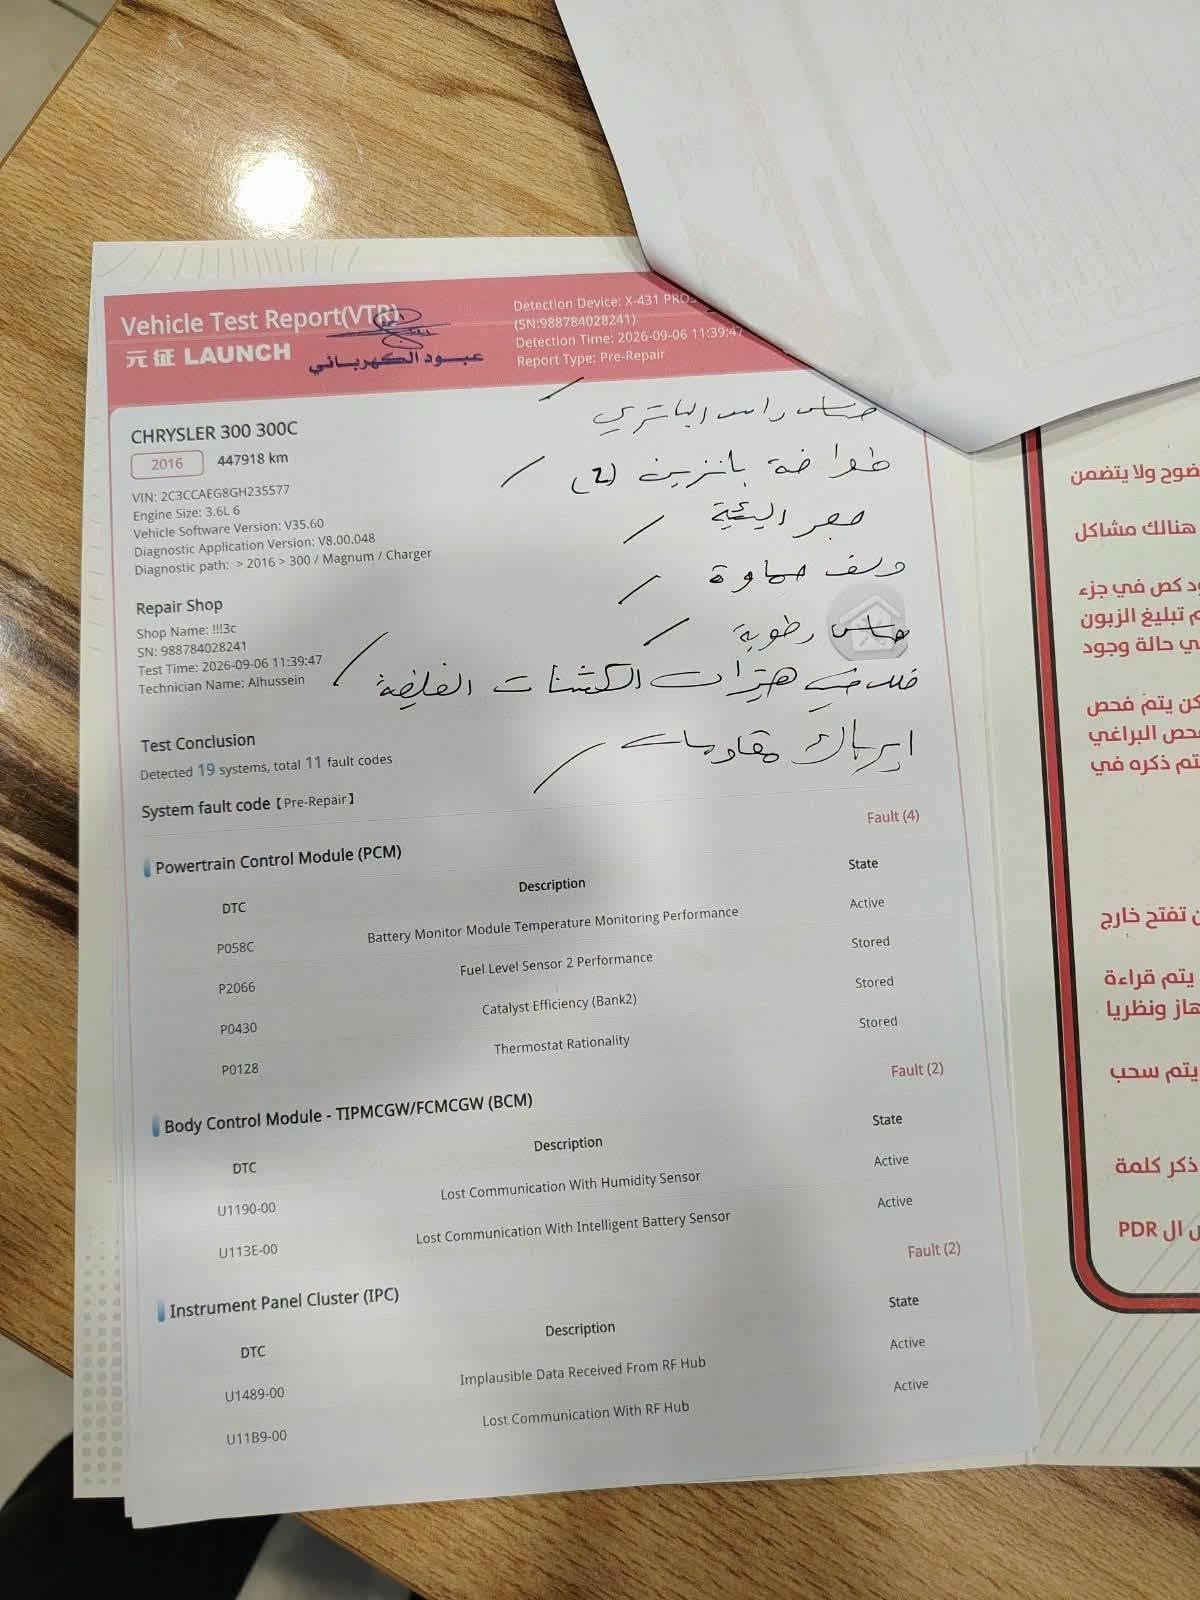 Vehicle Test Report(VTR)
元征 LAUNCH
عبود الكهربائي
Detection Device: X-431 PRO
(SN:988784028241)
Detection Time: 2026-09-06 11:39:47
Report Type: Pre-Repair
CHRYSLER 300 300C
2016 447918 km
VIN: 2C3CCAEG8GH235577
Engine Size: 3.6L 6
Vehicle Software Version: V35.60
Diagnostic Application Version: V8.00.048
Diagnostic path: > 2016 > 300 / Magnum / Charger
حساس راس الباتري
طوافة بانزين (2)
حجر البيئية
حساس رطوبة
الكشنات الخلفية
ايرباك مقاومات
Repair Shop
Shop Name: !!!3c
SN: 988784028241
Test Time: 2026-09-06 11:39:47
Technician Name: Alhussein
Test Conclusion
Detected 19 systems, total 11 fault codes
System fault code【Pre-Repair】
Powertrain Control Module (PCM) Fault (4)
DTC Description State
P058C Battery Monitor Module Temperature Monitoring Performance Active
P2066 Fuel Level Sensor 2 Performance Stored
P0430 Catalyst Efficiency (Bank2) Stored
P0128 Thermostat Rationality Stored
Body Control Module - TIPMCGW/FCMCGW (BCM) Fault (2)
DTC Description State
U1190-00 Lost Communication With Humidity Sensor Active
U113E-00 Lost Communication With Intelligent Battery Sensor Active
Instrument Panel Cluster (IPC) Fault (2)
DTC Description State
U1489-00 Implausible Data Received From RF Hub Active
U11B9-00 Lost Communication With RF Hub Active
ولا يتضمن
هنالك مشاكل
كص في جزء
تبليغ الزبون
ي حالة وجود
يتم فحص
فحص البراغي
ذكره في
تفتح خارج
يتم قراءة
ونظريا
يتم سحب
ذكر كلمة
ال PDR